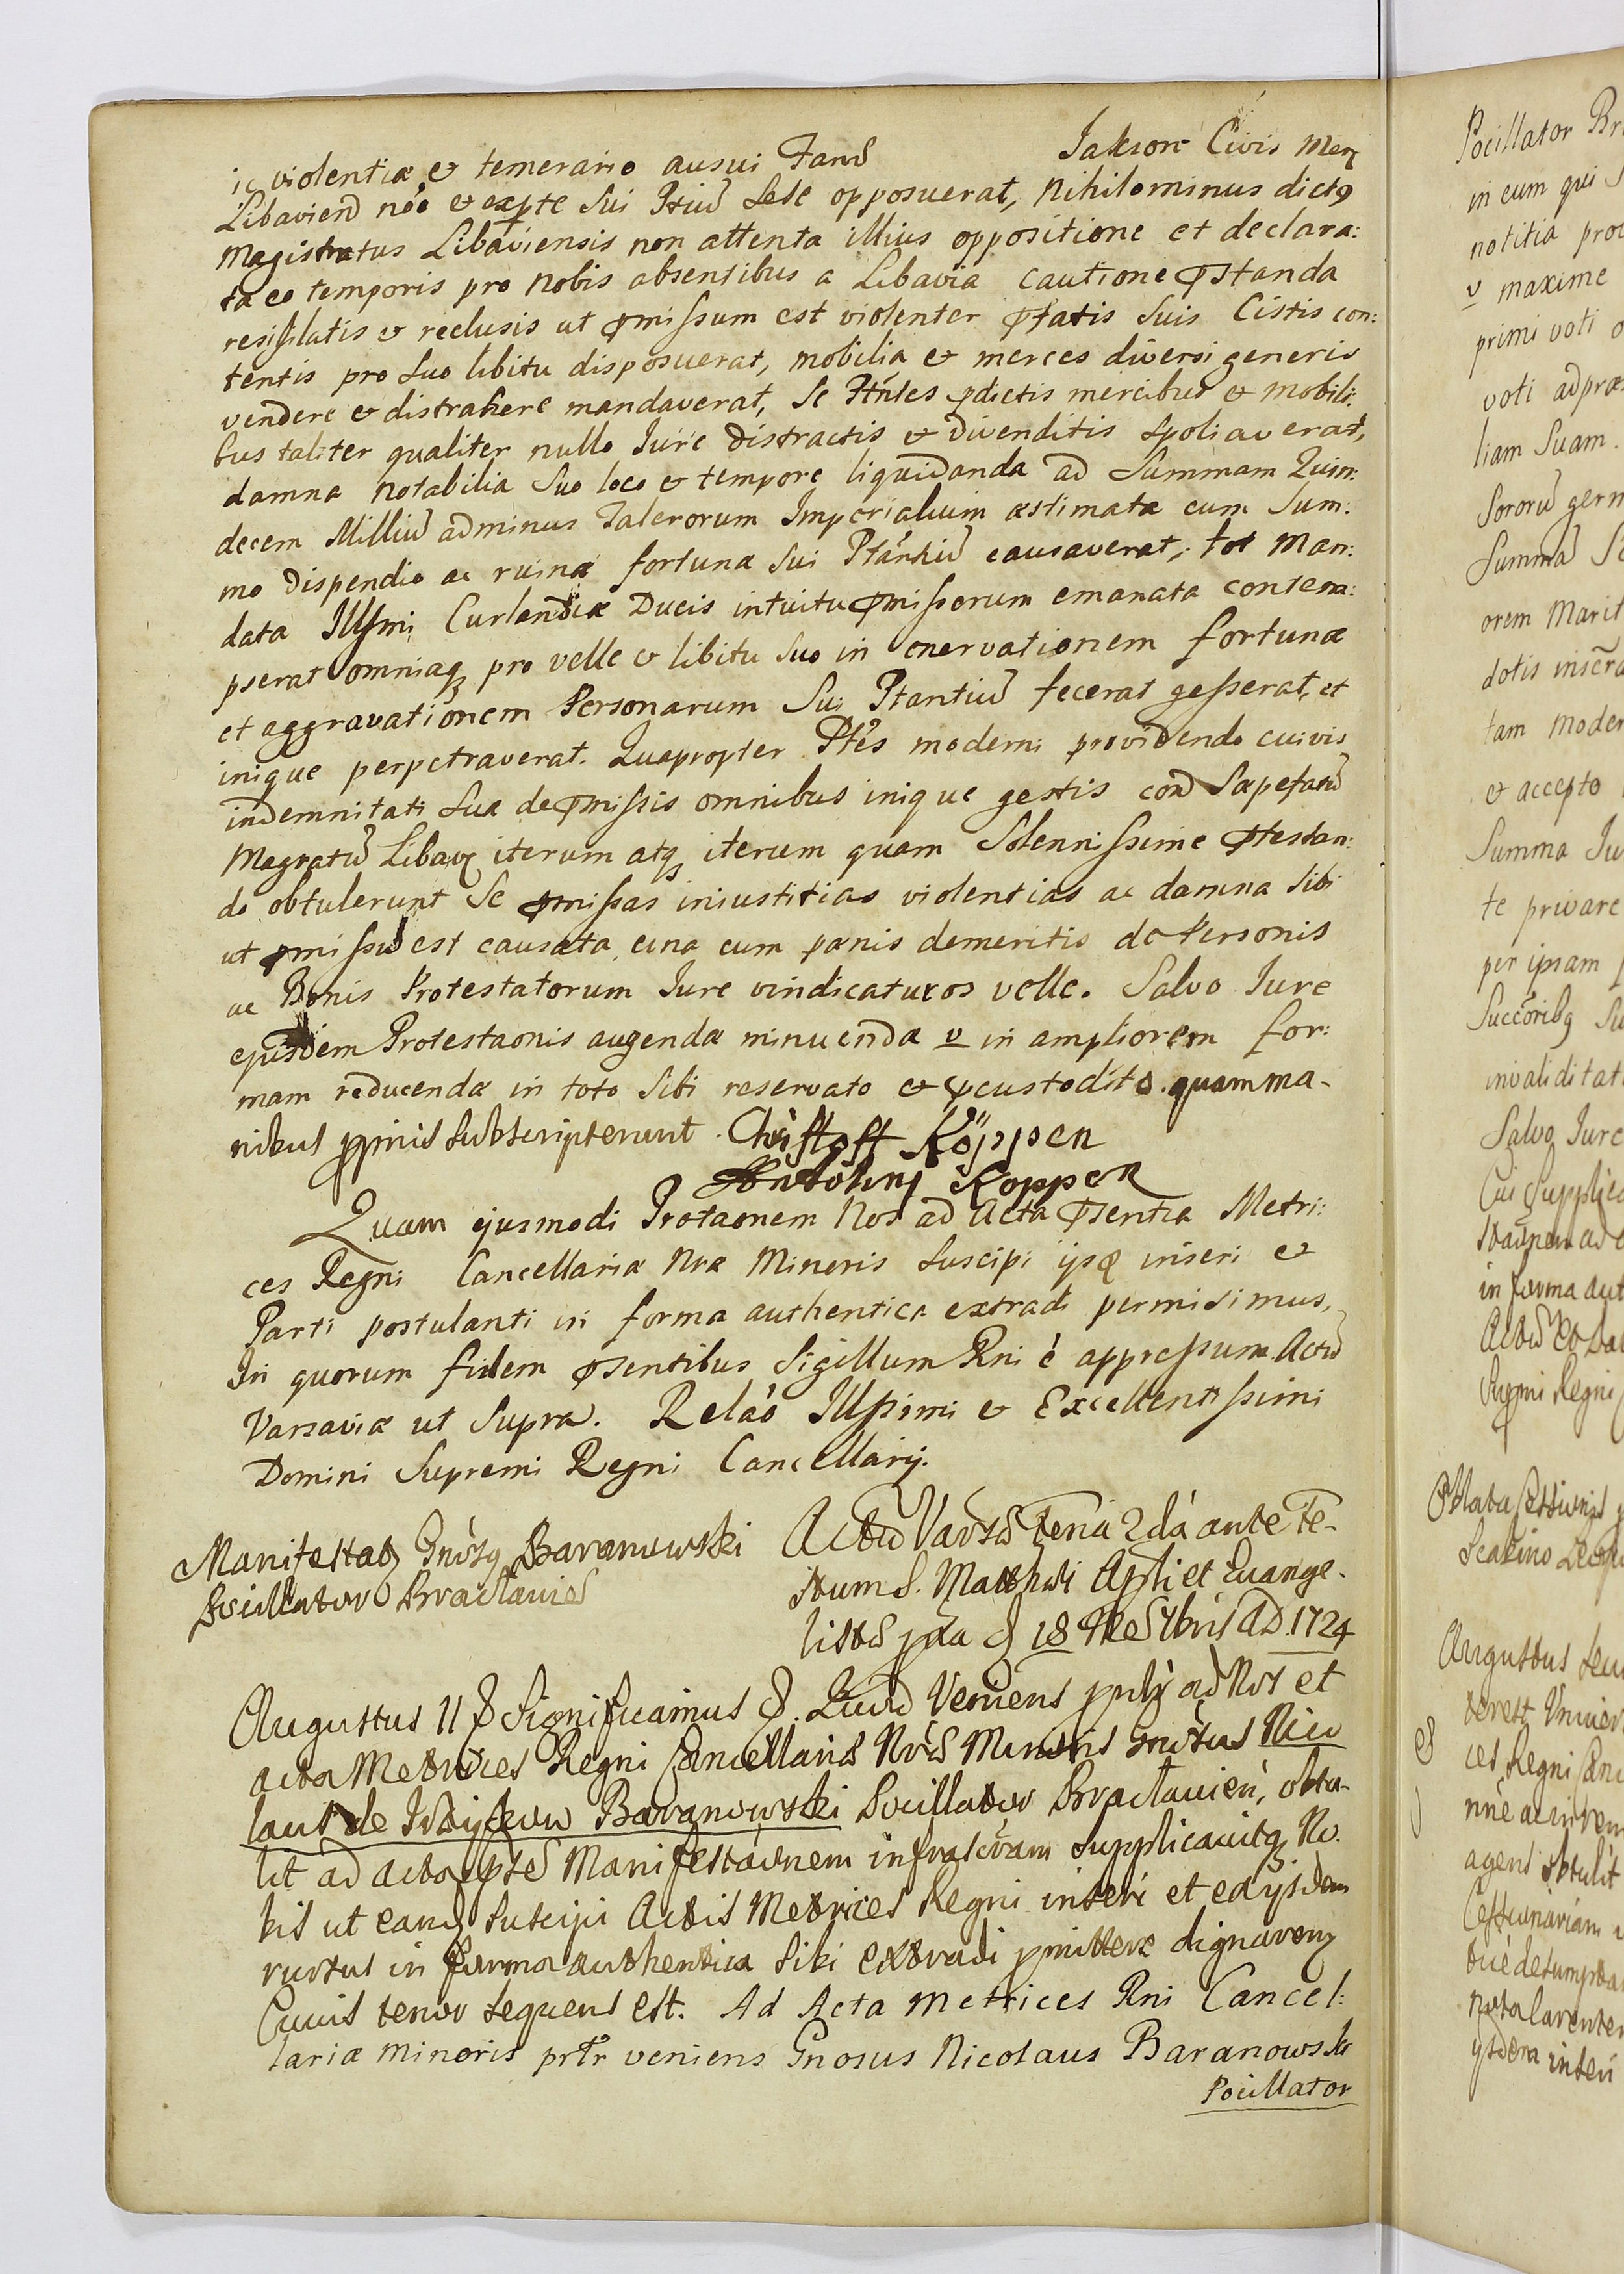 violentiæ et temerario ausui Fam̃ Jakson Civis Merc
Libavien̄ nõe et exp̄te sui Ptiũ sese opposuerat, nihilominus dictꝰ
Magistratus Libaviensis non attenta illius oppositione et declara:
ta eo temporis pro nobis absentibus a Libavia cautione p̄standa
resigilatis et reclusis ut p̄missum est violenter p̄fatis suis Cistis con:
tentis pro suo libitu disposuerat, mobilia et merces diversi generis
vendere et distrahere mandaverat, se Ptñtes p̄dictis mercibus et mobili:
bus taliter qualiter nullo Jure distractis et divenditis spoliaverat,
damna notabilia suo loco et tempore liquidanda ad summam Quin:
decem Milliũ adminus Talerorum Imperialium æstimata cum sum:
mo dispendio ac ruina fortuna sui Ptantiũ causaverat, tot man:
data Illsmi Curlandiæ Ducis intuitu p̄missorum emanata contem:
pserat omniaq; pro velle et libitu suo in enervationem fortunæ
et aggravationem Personarum sui Ptantiũ fecerat gesserat, et
inique perpetraverat. Quapropter Ptes moderni providendo cuivis
indemnitati suæ de p̄missis omnibus inique gestis con̄ sæpefatũ
Magratũ Libav iterum atq; iterum quam solennissime p̄testan:
do obtulerunt se p̄missas iniustitias violentias ac damna sibi
ut p̄missũ est causata una cum pænis demeritis de Personis
ac Bonis Protestatorum Jure vindicaturos velle. Salvo Jure
ejusdem Protestaonis augendæ minuendæ v in ampliorem for:
mam reducendæ in toto sibi reservato et p̄custodito. quam ma-
nibus pp̄riis subscripserunt. Christoff Köppen
Anthony Koppen
Quam ejusmodi Protaonem Nos ad Acta p̄sentia Metri:
ces Regni Cancellariæ Nræ Minoris suscipi ijsq; inseri et
Parti postulanti in forma authentica extradi permisimus,
In quorum fidem p̄sentibus Sigillum Rni é appressum. Actũ
Varsaviæ ut supra. Relaõ Illssimi et Excellentissimi
Domini Supremi Regni Cancellarij.
Manifestao Gnõsi Baranowski
Pocillatoris Braclavien̄
Actũ Varsæ Feria 2dá ante Fe-
stum S. Matthæi Apli et Evange-
listæ p̄a d 18 Mes 7bris AD. 1724
Augustus II & Significamus &. Quia Veniens p̄nlr ad Nos et
acta Metrices Regni Cancellariæ Nræ Minoris Gnõsus Nico
laus de Baranowski Pocillator Braclavien̄, obtu-
lit ad acta p̄sta Manifestaõnem infrascr̄am supplicavitq; No-
bis ut eand suscipi Actis Metrices Regni inseri et ea ijsdem
rursus in forma authentica sibi extradi p̄mittere dignaremr
Cuius tenor sequens est. Ad Acta Metrices Rni Cancel:
lariæ Minoris prlr veniens Gnosus Nicolaus Baranowski
Pocillator
Pocillator Br
in eum qui
notitia pro
v maxime
primi voti
voti ad præ
liam suam.
Sororũ germ
Summã
orem Marit
dotis inscr̃a
tam moder
et accepto
Summa Ju
te privare
per ipsam
Succõribq
invaliditat
Salvo Jure
Cui Supplica
in forma aut
Supmi Regni
Oblata Cessionis
Augustus
ces Regni Canc
agens obtulit
ijsdem inseri